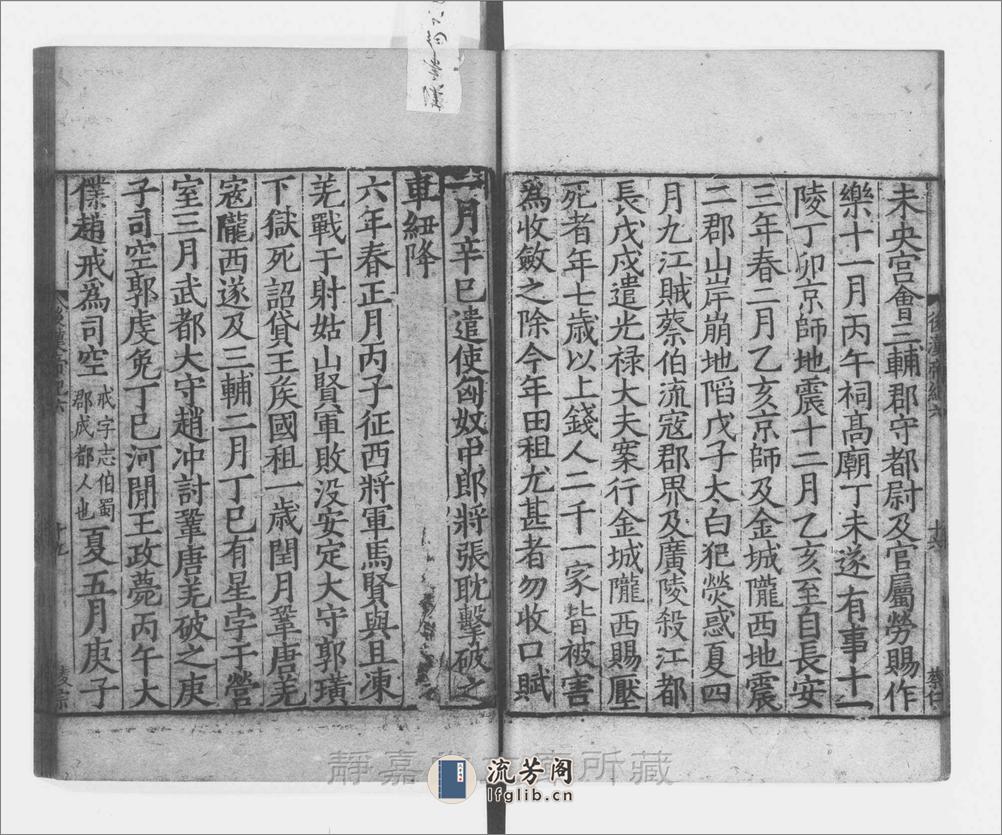 未央宮會三輔郡守都尉及官屬勞賜作
樂十一月丙午祠高廟丁未遂有事十一
陵丁卯京師地震十二月乙亥至自長安
三年春二月乙亥京師及金城隴西地震
二郡山岸崩地陷戊子太白犯熒惑夏四
月九江賊蔡伯流寇郡界及廣陵殺江都
長戊戌遣光祿大夫案行金城隴西賜壓
死者年七歲以上錢人二千一家皆被害
為收斂之除今年田租尤甚者勿收口賦
一月辛巳遣使匈奴中郎將張耽擊破之
車紐降
六年春正月丙子征西將軍馬賢與且凍
羌戰于射姑山賢軍敗沒安定大守郭璜
下獄死詔貸王矦國租一歲閏月鞏唐羌
寇隴西遂及三輔二月丁巳有星孛于營
室三月武都大守趙冲討鞏唐羌破之庚
子司空郭虔免丁巳河閒王政薨丙午大
僕趙戒為司空戒字志伯蜀郡成都人也夏五月庚子
後漢帝紀六
十九
靜嘉所藏
流芳阁
lfglib.cn